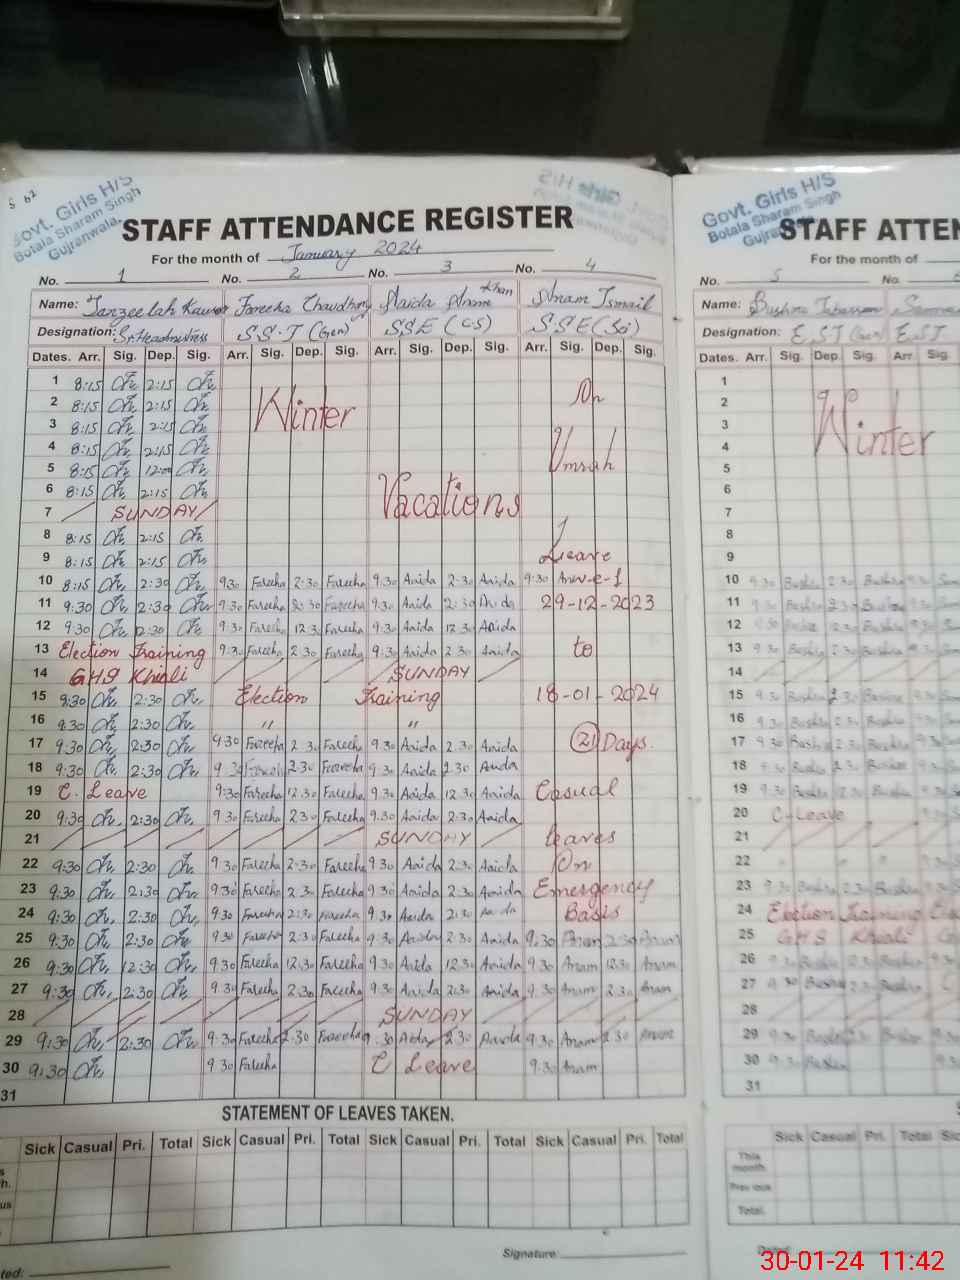 S 62
Govt. Girls H/S
Botala Sharam Singh
Gujranwala.
STAFF ATTENDANCE REGISTER
For the month of January 2024
No. 1 No. 2 No. 3 No. 4
Name: Tanzeelah Kauser Fareeha Chaudhry Anam Ismail
Designation: Sr. Headmistress S.S.T (Gen) SSE (CS) SSE (Sci)
Dates. Arr. Sig. Dep. Sig. Arr. Sig. Dep. Sig. Arr. Sig. Dep. Sig. Arr. Sig. Dep. Sig.
1 8:15 2:15
2 8:15 2:15 Winter On
3 8:15 2:15
4 8:15 2:15 Umrah
5 8:15 12:00
6 8:15 2:15 Vacations
7 SUNDAY
8 8:15 2:15
9 8:15 2:15 Leave
10 8:15 2:30 9:30 Fareeha 2:30 Fareeha 9:30 Aaida 2:30 Aaida 9:30 w-e-f
11 9:30 2:30 9:30 Fareeha 2:30 Fareeha 9:30 Aaida 2:30 Aaida 29-12-2023
12 9:30 2:30 9:30 Fareeha 12:30 Fareeha 9:30 Aaida 12:30 Aaida
13 Election Training 9:30 Fareeha 2:30 Fareeha 9:30 Aaida 2:30 Aaida to
14 GHS Khiali SUNDAY
15 9:30 2:30 Election Training 18-01-2024
16 9:30 2:30 " "
17 9:30 2:30 9:30 Fareeha 2:30 Fareeha 9:30 Aaida 2:30 Aaida 21 Days.
18 9:30 2:30 9:30 Fareeha 2:30 Fareeha 9:30 Aaida 2:30 Aaida
19 C. Leave 9:30 Fareeha 12:30 Fareeha 9:30 Aaida 12:30 Aaida Casual
20 9:30 2:30 9:30 Fareeha 2:30 Fareeha 9:30 Aaida 2:30 Aaida
21 SUNDAY leaves
22 9:30 2:30 9:30 Fareeha 2:30 Fareeha 9:30 Aaida 2:30 Aaida On
23 9:30 2:30 9:30 Fareeha 2:30 Fareeha 9:30 Aaida 2:30 Aaida Emergency
24 9:30 2:30 9:30 Fareeha 2:30 Fareeha 9:30 Aaida 2:30 Aaida Basis
25 9:30 2:30 9:30 Fareeha 2:30 Fareeha 9:30 Aaida 2:30 Aaida 9:30 Anam 2:30 Anam
26 9:30 12:30 9:30 Fareeha 12:30 Fareeha 9:30 Aaida 12:30 Aaida 9:30 Anam 12:30 Anam
27 9:30 2:30 9:30 Fareeha 2:30 Fareeha 9:30 Aaida 2:30 Aaida 9:30 Anam 2:30 Anam
28 SUNDAY
29 9:30 2:30 9:30 Fareeha 2:30 Fareeha 9:30 Aaida 2:30 Aaida 9:30 Anam 2:30 Anam
30 9:30 9:30 Fareeha C Leave 9:30 Anam
31
STATEMENT OF LEAVES TAKEN.
Sick Casual Pri. Total Sick Casual Pri. Total Sick Casual Pri. Total Sick Casual Pri. Total
Signature:
Govt. Girls H/S
Botala Sharam Singh
STAFF ATTEN
For the month of
No. 5 No.
Name: Bushra
Designation: E.S.T (Gen) E.S.T
Dates. Arr. Sig. Dep. Sig. Arr. Sig.
1
2
3 Winter
4
5
6
7
8
9
10 9:30 Bushra 2:30 Bushra
11 9:30 Bushra 2:30 Bushra
12 9:30 Bushra 12:30 Bushra
13 9:30 Bushra 2:30 Bushra
14
15 9:30 Bushra 2:30 Bushra
16 9:30 Bushra 2:30 Bushra
17 9:30 Bushra 2:30 Bushra
18 9:30 Bushra 2:30 Bushra
19 9:30 Bushra 12:30 Bushra
20 C-Leave
21
22
23 9:30 Bushra 2:30 Bushra
24 Election Training
25 GHS Khiali
26 9:30 Bushra 12:30 Bushra
27 9:30 Bushra 2:30 Bushra
28
29 9:30 Bushra 2:30 Bushra
30 9:30 Bushra
31
Sick Casual Pri. Total
This month.
Previous
Total.
Dated:
30-01-24 11:42